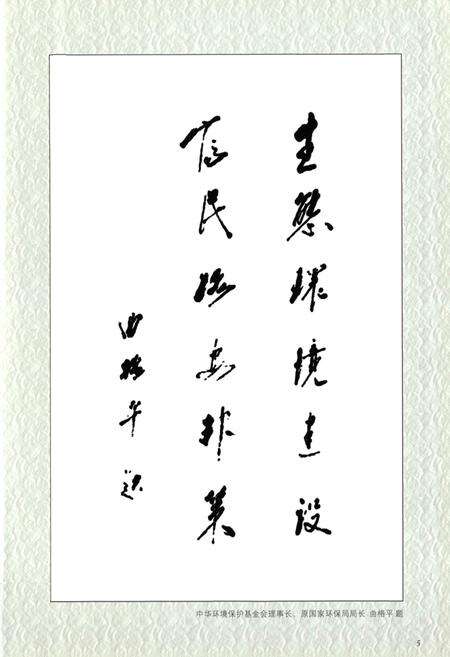 生態環境建设
民 安邦策
曲格平 题
中华环境保护基金会理事长、原国家环保局局长 曲格平 题
5